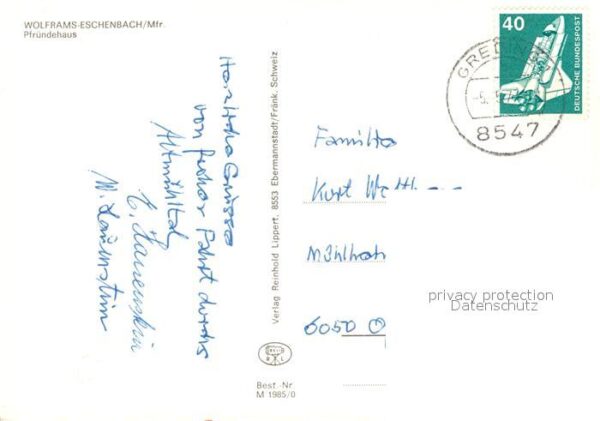 WOLFRAMS-ESCHENBACH/Mfr.
Pfründehaus
Herzliche Grüsse
von Fahrt durchs
Altmühltal
Verlag Reinhold Lippert, 8553 Ebermannstadt/Fränk. Schweiz
Best.-Nr
M 1985/0
40
DEUTSCHE BUNDESPOST
8547
Familie
Kurt
6050 O
privacy protection
Datenschutz